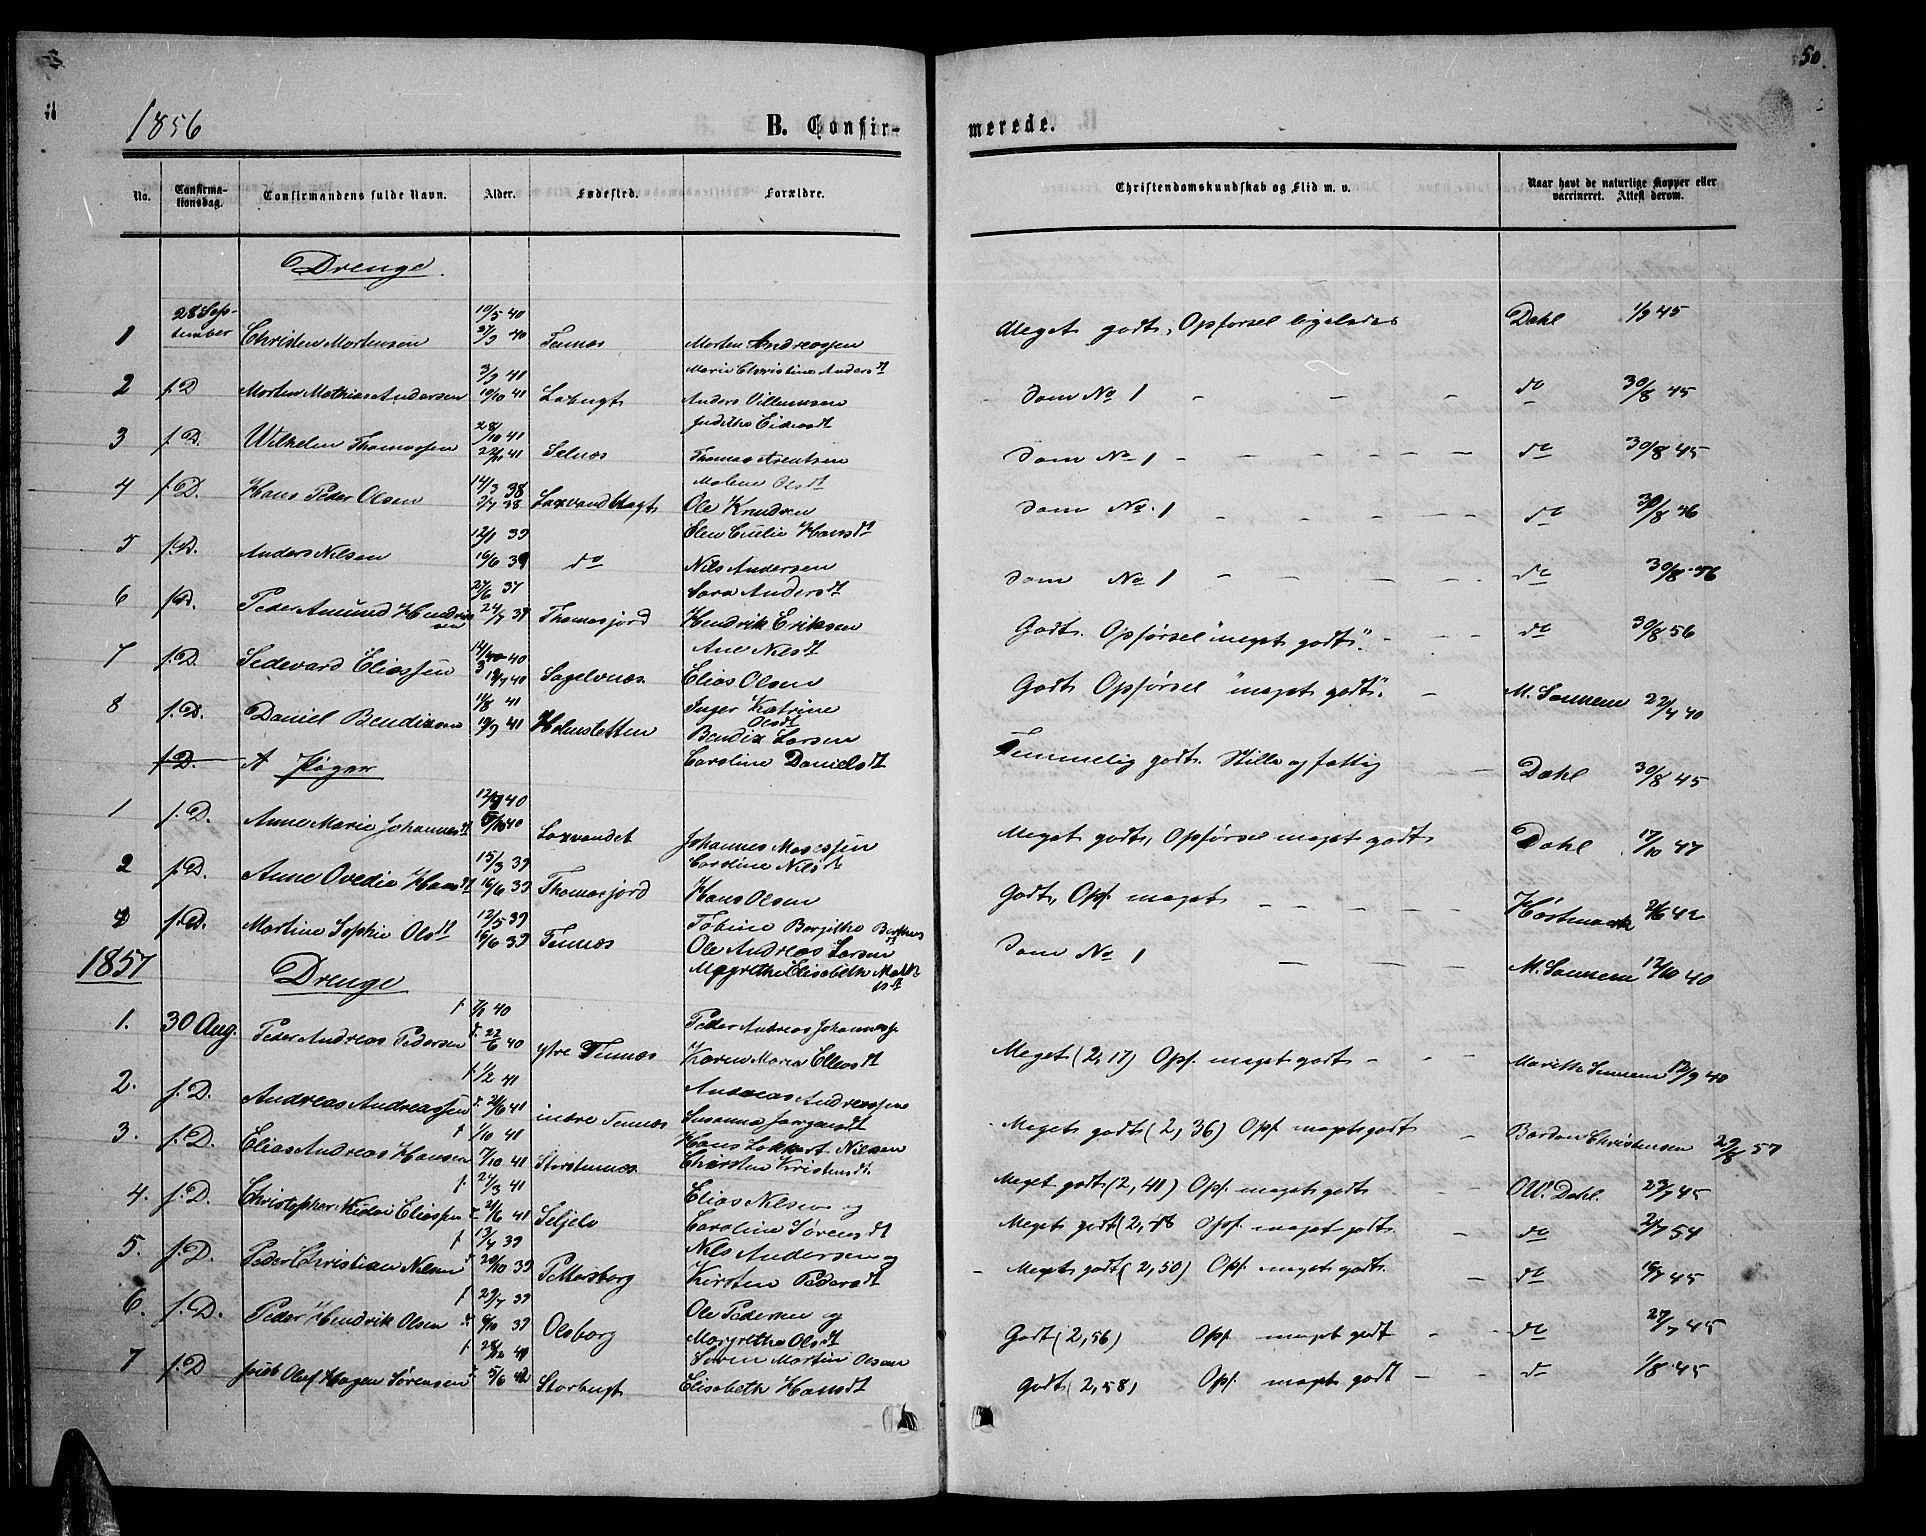 50.
1856 B. Confirmerede.
No. Confirmationsdag. Confirmandens fulde Navn. Alder. Fødested. Forældre. Christendomskundskab og Flid m. v. Naar havt de naturlige Kopper eller vaccineret. Attest derom.
Drenge.
1 28 September Christen Mortensen 10/5 40 27/9 40 Tennes Morten Andreassen Marie Christine Andersdt Meget godt, Opførsel ligeledes Dahl 1/9 45
2 f. D Morten Mathias Andersen 3/9 41 10/10 41 Laxbugt Anders Villumsen Som No 1 do 30/8 45
3 f. D. Wilhelm Thomassen 28/10 41 Selnes Thomas Arentsen Malene Olsdt Som No 1 do 30/8 45
4 f. D. Hans Peder Olsen 14/3 38 2/7 38 Laxvand Ole Knudsen Elen Cecilie Hansdt Som No. 1 do 30/8 46
5 f. D. Anders Nilsen 12/1 39 16/6 39 do Nils Andersen Sara Andersdt Som No 1 do 30/8 46
6 f. D. Peder Amund Hendriksen 27/6 37 24/7 39 Thomasjord Hendrik Eriksen Ane Nilsdt Godt. Opførsel "meget godt". do 30/8 56
7 f. D. Sedevard Eliassen 40 19/7 40 Sagelvnes Elias Olsen Inger Katrine Olsdt Godt Opførsel "meget godt". M. Sannem 22/4 40
8 f. D. Daniel Bendixsen 11/8 41 19/9 41 Holmsletten Bendix Larsen Caroline Danielsdt Temmelig godt. Stille og fattig Dahl 30/8 45
f. D. A Piger
1 f. D. Anne Marie Johannesdt 40 Laxvandet Johannes Mosessen Caroline Nilsdt Meget godt, Opførsel meget godt Dahl 17/10 47
2 f. D. Anne Ovedia Hansdt 15/3 39 16/6 39 Thomasjord Hans Olsen Tobine Bergithe Godt, Opf. meget Høstmark 42
3 f. D. Martine Sophie Olsdt 12/5 39 16/6 39 Tennes Ole Andreas Larsen Margrethe Elisabeth Som No 1 M. Sannem 17/10 40
1857 Drenge
1. 30 Aug. Peder Andreas Pedersen f. 7/1 40 22/6 40 ytre Tennes Peder Andreas Johanness. Karen Maria Ellevsdt Meget (2,17) Opf. meget godt Marith Sannem 13/9 40
2. f. D. Andreas Andreassen f. 1/2 41 21/6 41 indre Tennes Andreas Andreassen Susanna Jørgensdt Meget godt (2,36) Opf. meget godt Bardon Christensen 29/8 57
3. f. D. Elias Andreas Hansen f. 1/10 41 7/10 41 Storstennes Hans Lokkert Nilssen Chirsten Kristensdt. Meget godt (2,41) Opf. meget godt O.W. Dahl. 23/7 45
4. f. D. Christopher Eliassen f. 27/3 41 21/6 41 Seljelv Elias Nilsen og Caroline Sørensdt Meget godt (2,48 Opf. meget godt. do 2/7 54
5. f. D. Peder Christian Nilsen f. 13/4 39 20/10 39 P Morsborg Nils Andersen og Kirsten Pedersdt Meget godt (2,50) Opf. meget godt. do 16/7 45
6. f. D. Peder Hendrik Olsen f. 29/7 39 6/10 39 Olsborg Ole Pedersen og Margrethe Olsdt Godt (2,56) Opf. meget godt do 27/7 45
7 f. D Oluf Hagen Sørensen 5/6 42 Storbugt Søren Martin Olsen Elisabeth Hansdt Godt (2,58) Opf. meget godt do 1/8 45